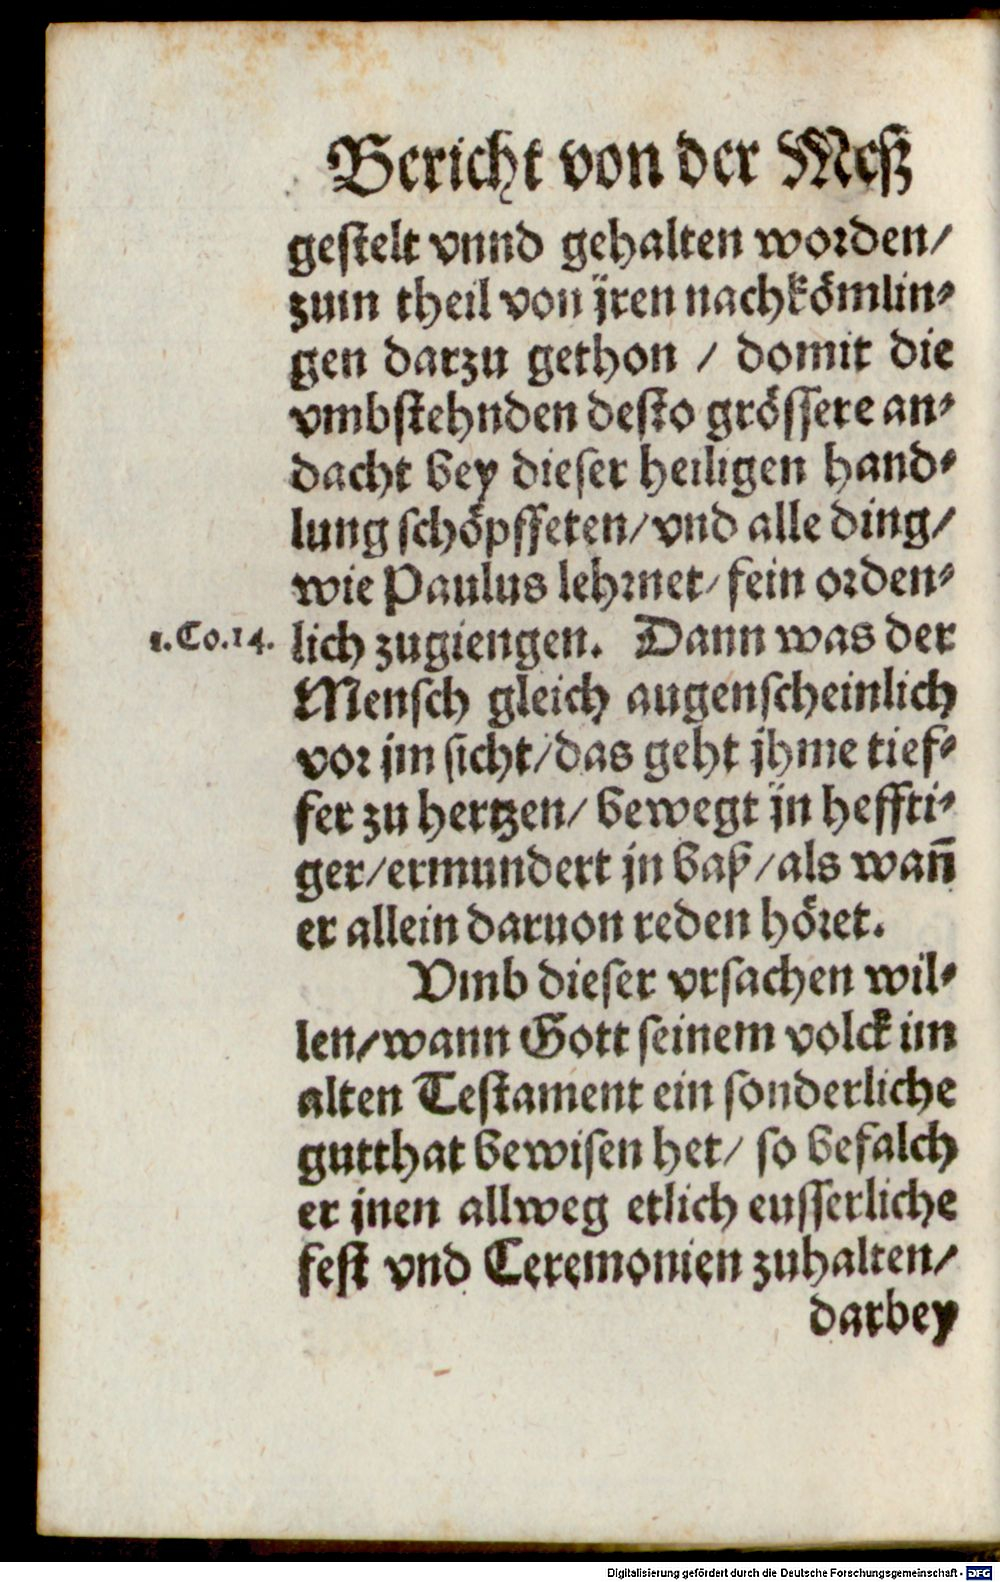 Bericht von der Meß
gestelt vnnd gehalten worden/
zum theil von jren nachkömlin-
gen darzu gethon / domit die
vmbstehnden desto grössere an-
dacht bey dieser heiligen hand-
lung schöpffeten/ vnd alle ding/
wie Paulus lehrnet/ fein orden-
1.Co.14. lich zugiengen. Dann was der
Mensch gleich augenscheinlich
vor jm sicht/ das geht jhme tief-
fer zu hertzen/ bewegt jn heffti-
ger/ ermundert jn baß/ als wañ
er allein daruon reden höret.
Vmb dieser vrsachen wil-
len/ wann Gott seinem volck im
alten Testament ein sonderliche
gutthat bewisen het/ so befalch
er jnen allweg etlich eusserliche
fest vnd Ceremonien zuhalten/
darbey
Digitalisierung gefördert durch die Deutsche Forschungsgemeinschaft - DFG